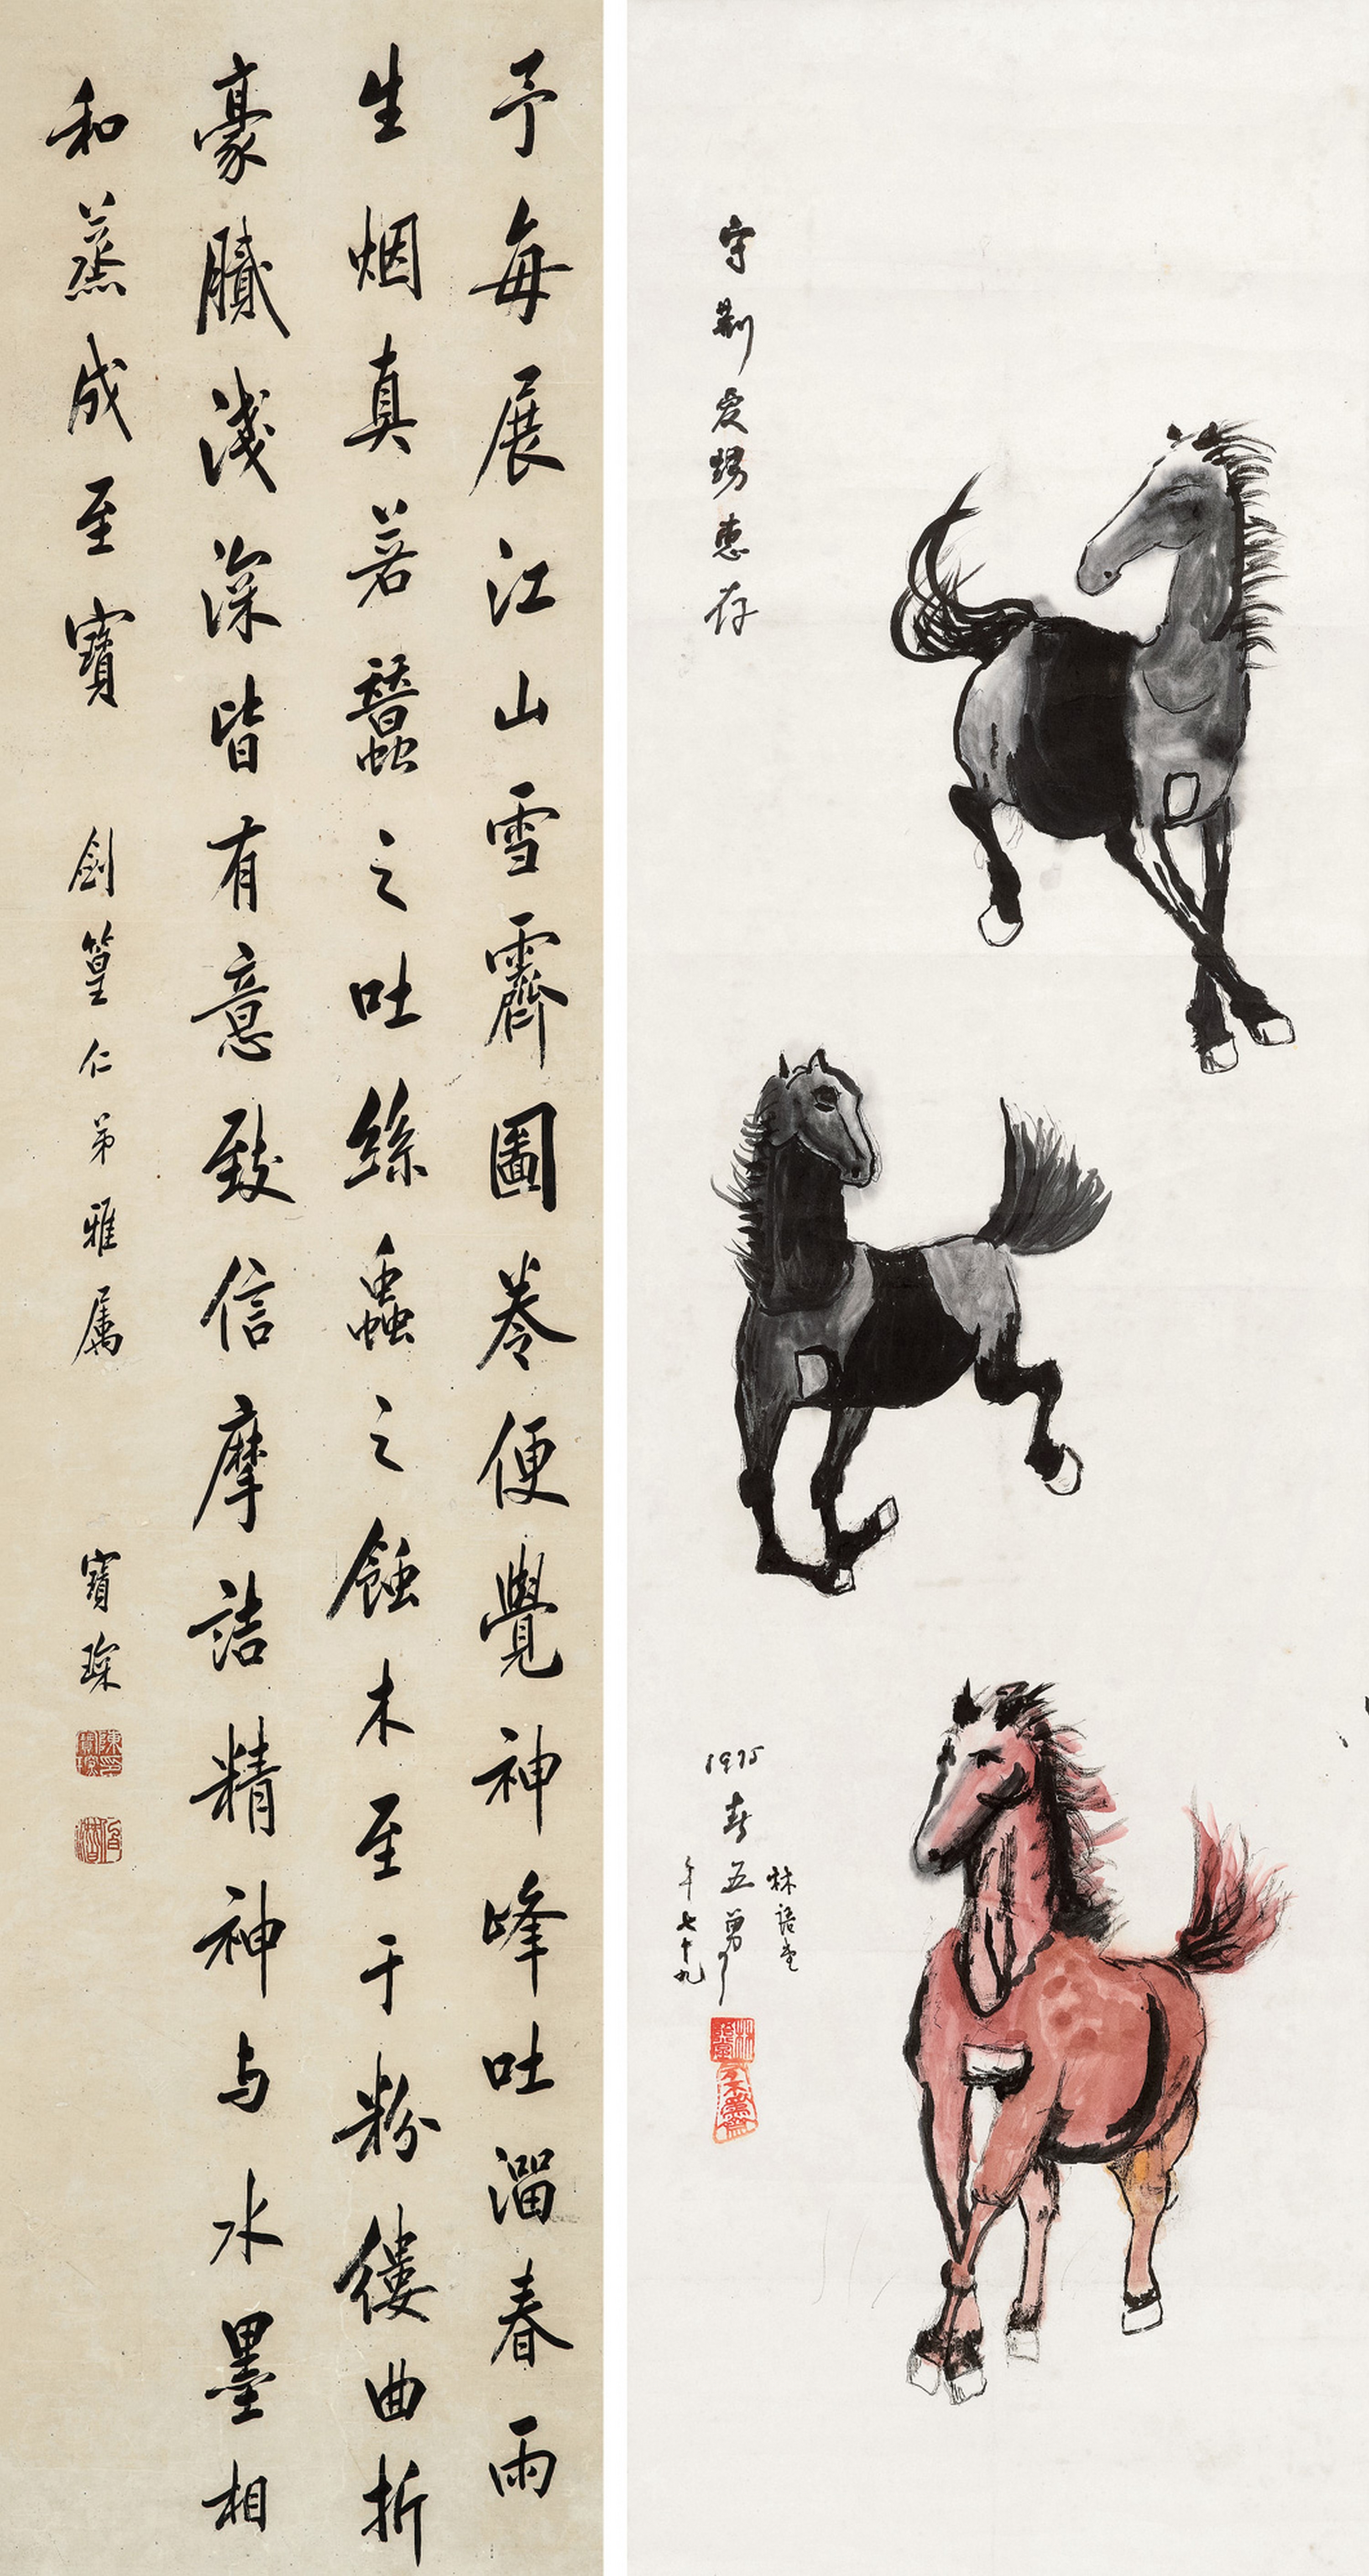 予每展江山雪霽圖卷便覺神峰吐溜春雨
生烟真若蠶之吐絲蟲之蝕木至于粉縷曲折
豪膩淺深皆有意致信摩詰精神与水墨相
和蒸成至寶
劍篁仁弟雅属
寶琛
陳寶琛印
守荆爱甥惠存
林語堂
1975春五舅
年七十九